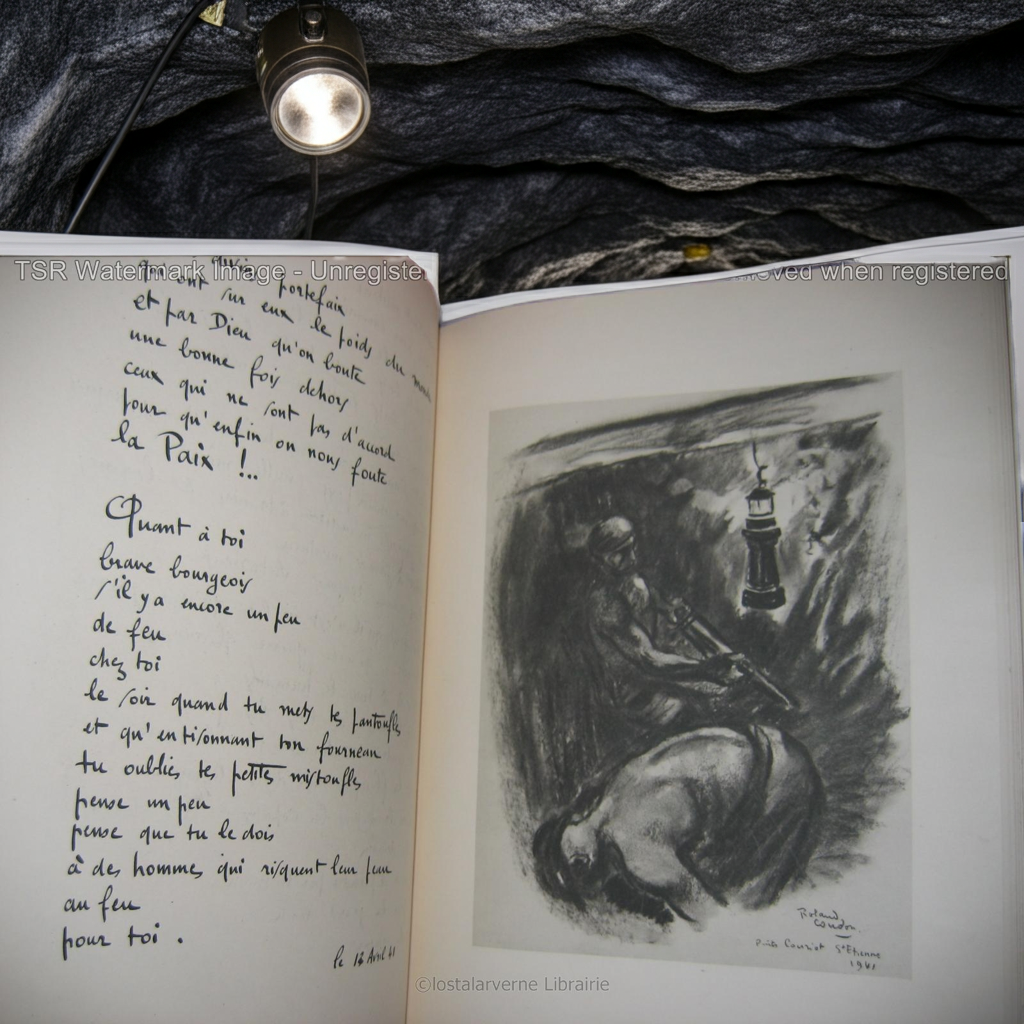 TSR Watermark Image - Unregiste
oved when registered
portefaix
qui ont sur eux le poids du monde
et par Dieu qu'on boute
une bonne fois dehors
ceux qui ne sont pas d'accord
pour qu'enfin on nous foute
la Paix !..
Quant à toi
brave bourgeois
s'il y a encore un peu
de feu
chez toi
le soir quand tu mets tes pantoufles
et qu'en tisonnant ton fourneau
tu oublies tes petites mistoufles
pense un peu
pense que tu le dois
à des hommes qui risquent leur peau
au feu
pour toi .
le 13 Avril 41
Roland
Coudon
Puits Couriot St Etienne
1941
©lostalarverne Librairie